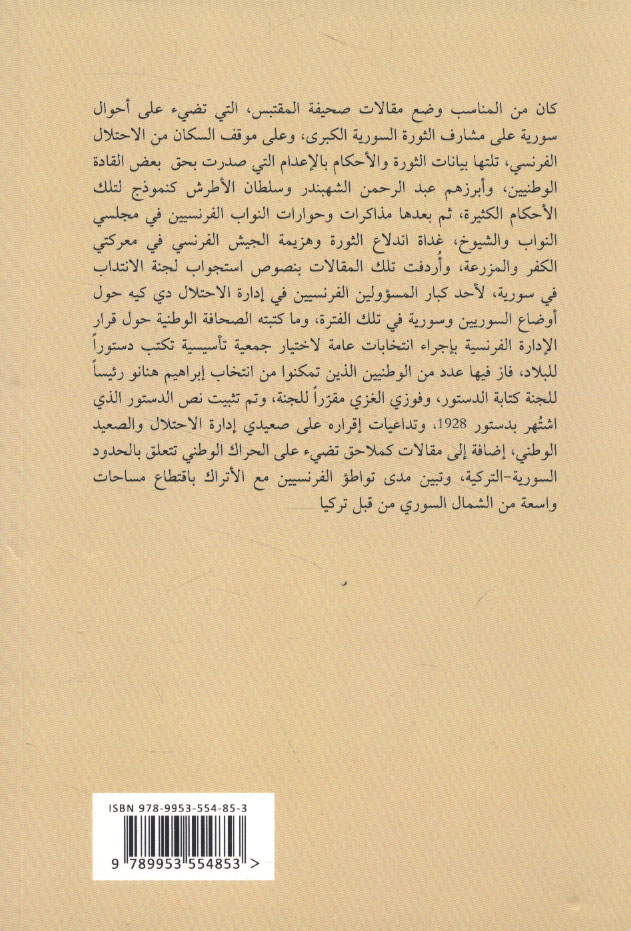 كان من المناسب وضع مقالات صحيفة المقتبس، التي تضيء على أحوال
سورية على مشارف الثورة السورية الكبرى، وعلى موقف السكان من الاحتلال
الفرنسي، تلتها بيانات الثورة والأحكام بالإعدام التي صدرت بحق بعض القادة
الوطنيين، وأبرزهم عبد الرحمن الشهبندر وسلطان الأطرش كنموذج لتلك
الأحكام الكثيرة، ثم بعدها مذاكرات وحوارات النواب الفرنسيين في مجلسي
النواب والشيوخ، غداة اندلاع الثورة وهزيمة الجيش الفرنسي في معركتي
الكفر والمزرعة، وأُردفت تلك المقالات بنصوص استجواب لجنة الانتداب
في سورية، لأحد كبار المسؤولين الفرنسيين في إدارة الاحتلال دي كيه حول
أوضاع السوريين وسورية في تلك الفترة، وما كتبته الصحافة الوطنية حول قرار
الإدارة الفرنسية بإجراء انتخابات عامة لاختيار جمعية تأسيسية تكتب دستوراً
للبلاد، فاز فيها عدد من الوطنيين الذين تمكنوا من انتخاب إبراهيم هنانو رئيساً
للجنة كتابة الدستور، وفوزي الغزي مقرّراً للجنة، وتم تثبيت نص الدستور الذي
اشتُهر بدستور 1928، وتداعيات إقراره على صعيدي إدارة الاحتلال والصعيد
الوطني، إضافة إلى مقالات كملاحق تضيء على الحراك الوطني تتعلق بالحدود
السورية-التركية، وتبين مدى تواطؤ الفرنسيين مع الأتراك باقتطاع مساحات
واسعة من الشمال السوري من قبل تركيا
ISBN 978-9953-554-85-3
9 789953 554853 >